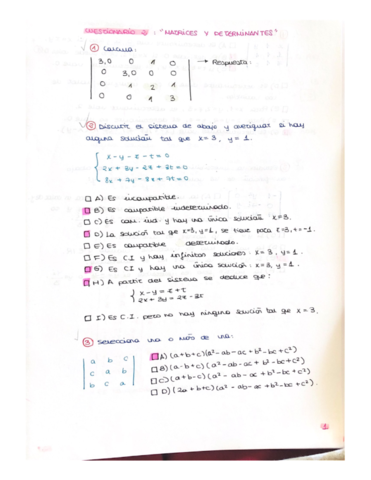 CUESTIONARIO 2: "MATRICES Y DETERMINANTES"
① Calcula:
3,0 0 1 0
0 3,0 0 0
0 1 2 1
0 0 1 3
→ Respuesta:
② Discutir el sistema de abajo y averiguar si hay
alguna solución tal que x=3, y=1.
x-y-z-t=0
2x+3y-2z+3t=0
3x+7y-8z+7t=0
A) Es incompatible.
B) Es compatible indeterminado.
C) Es com. ind. y hay una única solución x=3.
D) La solución tal que x=3, y=1, se tiene para z=3, t=-1.
E) Es compatible determinado.
F) Es C.I y hay infinitas soluciones: x=3, y=1.
G) Es C.I y hay una única solución: x=3, y=1.
H) A partir del sistema se deduce que:
x-y=z+t
2x+3y=2z-3t
I) Es C.I. pero no hay ninguna solución tal que x=3.
③ Selecciona una o más de una:
a b c
c a b
b c a
A) (a+b+c)(a²-ab-ac+b²-bc+c²)
B) (a-b+c)(a²-ab-ac+b²-bc+c²)
C) (a+b-c)(a²-ab-ac+b²-bc+c²)
D) (2a+b+c)(a²-ab-ac+b²-bc+c²).
1